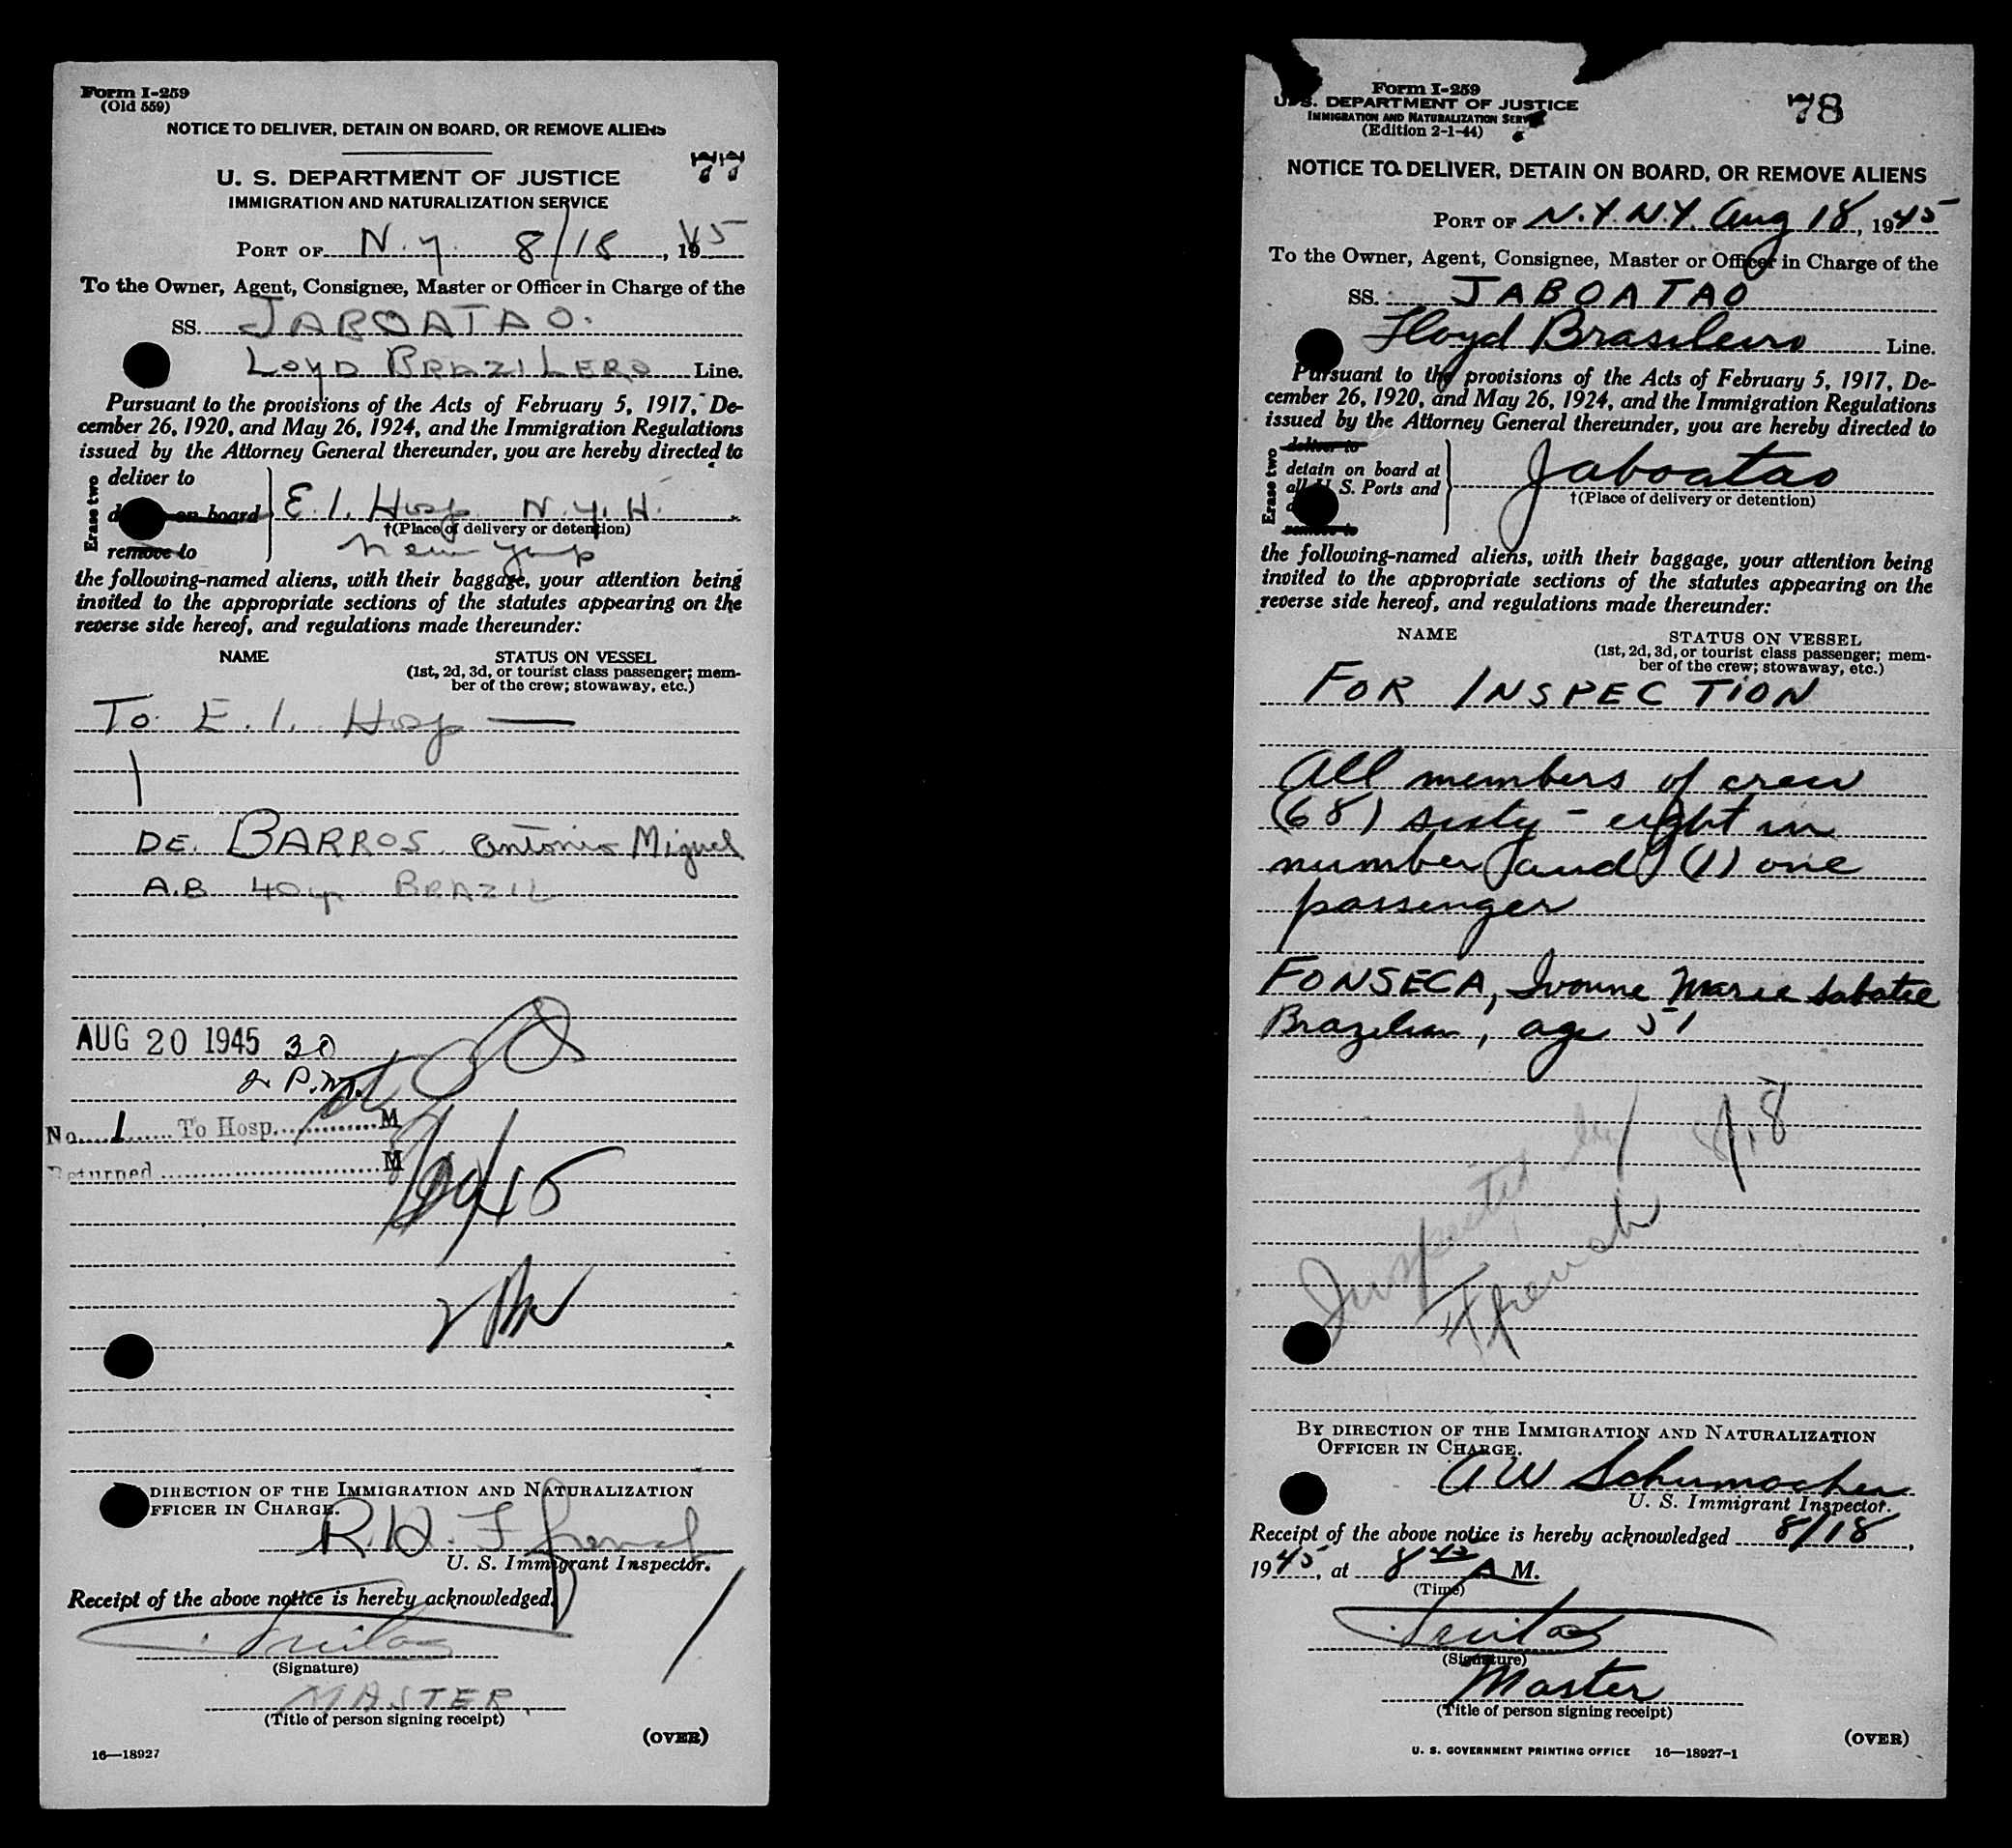 Form I-259
(Old 559)
NOTICE TO DELIVER, DETAIN ON BOARD, OR REMOVE ALIENS
77
U. S. DEPARTMENT OF JUSTICE
IMMIGRATION AND NATURALIZATION SERVICE
PORT OF N.Y. 8/18, 1945
To the Owner, Agent, Consignee, Master or Officer in Charge of the
SS. JABOATAO.
LOYD BRAZILERO Line.
Pursuant to the provisions of the Acts of February 5, 1917, De-
cember 26, 1920, and May 26, 1924, and the Immigration Regulations
issued by the Attorney General thereunder, you are hereby directed to
Erase two
deliver to
on board
remove to
E. I. Hosp N.Y.H.
†(Place of delivery or detention)
New York
the following-named aliens, with their baggage, your attention being
invited to the appropriate sections of the statutes appearing on the
reverse side hereof, and regulations made thereunder:
NAME STATUS ON VESSEL
(1st, 2d, 3d, or tourist class passenger; mem-
ber of the crew; stowaway, etc.)
To E. I. Hosp —
1
DE. BARROS Antonio Miguel
A.B 40 yr BRAZIL
AUG 20 1945 30
2 P.M.
No. 1 To Hosp. M
Returned M
DIRECTION OF THE IMMIGRATION AND NATURALIZATION
FFICER IN CHARGE.
R.H.
U. S. Immigrant Inspector.
Receipt of the above notice is hereby acknowledged.
Freitas
(Signature)
MASTER
(Title of person signing receipt)
(OVER)
16—18927
Form I-259
U. S. DEPARTMENT OF JUSTICE
IMMIGRATION AND NATURALIZATION SERVICE
(Edition 2-1-44)
78
NOTICE TO DELIVER, DETAIN ON BOARD, OR REMOVE ALIENS
PORT OF N.Y. N.Y. Aug 18, 1945
To the Owner, Agent, Consignee, Master or Officer in Charge of the
SS. JABOATAO
Lloyd Brasileiro Line.
Pursuant to the provisions of the Acts of February 5, 1917, De-
cember 26, 1920, and May 26, 1924, and the Immigration Regulations
issued by the Attorney General thereunder, you are hereby directed to
Erase two
deliver to
detain on board at
all U. S. Ports and
remove to
Jaboatao
†(Place of delivery or detention)
the following-named aliens, with their baggage, your attention being
invited to the appropriate sections of the statutes appearing on the
reverse side hereof, and regulations made thereunder:
NAME STATUS ON VESSEL
(1st, 2d, 3d, or tourist class passenger; mem-
ber of the crew; stowaway, etc.)
FOR INSPECTION
All members of crew
(68) sixty-eight in
number and (1) one
passenger
FONSECA, Ivonne Marie Sabatie
Brazilian, age 51
Inspected by
BY DIRECTION OF THE IMMIGRATION AND NATURALIZATION
OFFICER IN CHARGE.
A W Schumacher
U. S. Immigrant Inspector.
Receipt of the above notice is hereby acknowledged 8/18,
1945, at 8 45 A M.
(Time)
Freitas
(Signature)
Master
(Title of person signing receipt)
(OVER)
U. S. GOVERNMENT PRINTING OFFICE 16—18927-1